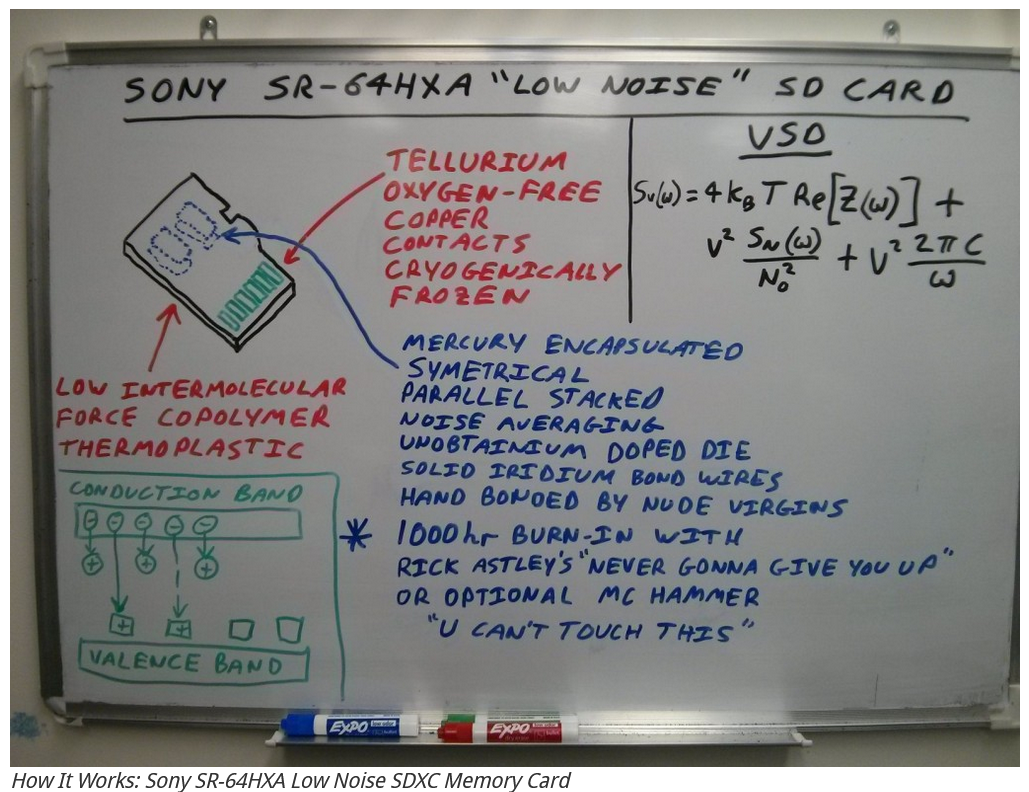 SONY SR-64HXA "LOW NOISE" SD CARD
TELLURIUM
OXYGEN-FREE
COPPER
CONTACTS
CRYOGENICALLY
FROZEN
VSD
Sv(ω) = 4 k_B T Re[Z(ω)] +
V² S_N(ω)/N₀² + V² 2πC/ω
LOW INTERMOLECULAR
FORCE COPOLYMER
THERMOPLASTIC
MERCURY ENCAPSULATED
SYMETRICAL
PARALLEL STACKED
NOISE AVERAGING
UNOBTAINIUM DOPED DIE
SOLID IRIDIUM BOND WIRES
HAND BONDED BY NUDE VIRGINS
* 1000hr BURN-IN WITH
RICK ASTLEY'S "NEVER GONNA GIVE YOU UP"
OR OPTIONAL MC HAMMER
"U CAN'T TOUCH THIS"
CONDUCTION BAND
- - - - -
+ + +
+ +
VALENCE BAND
EXPO EXPO
How It Works: Sony SR-64HXA Low Noise SDXC Memory Card